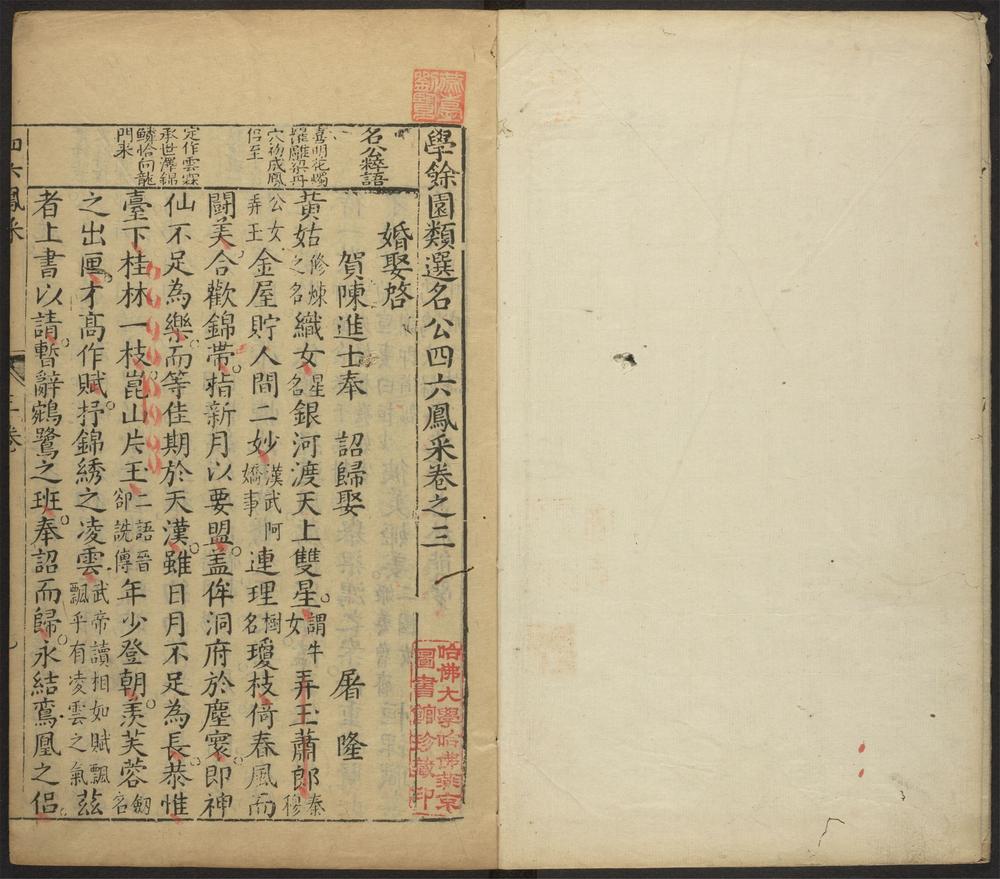 學餘園類選名公四六鳳采卷之三
哈佛大學哈佛燕京
圖書館珍藏印
名公粹語
喜明花燭
羅雕梁丹
穴初成鳳
侶至
定作雲霖
承世澤錦
鱗恰向龍
門來
婚娶啓
賀陳進士奉 詔歸娶 屠隆
黃姑修煉之名織女星名銀河渡天上雙星謂牛女弄玉蕭郎秦穆
公女弄玉金屋貯人間二妙漢武阿嬌事連理樹名瓊枝倚春風而
鬪美合歡錦帶指新月以要盟蓋侔洞府於塵寰即神
仙不足為樂而等佳期於天漢雖日月不足為長恭惟
臺下桂林一枝崑山片玉二語晉郤詵傳年少登朝羨芙蓉劒名
之出匣才高作賦抒錦綉之凌雲武帝讀相如賦飄飄乎有凌雲之氣茲
者上書以請暫辭鵷鷺之班奉詔而歸永結鸞凰之侶
四六鳳采
三卷